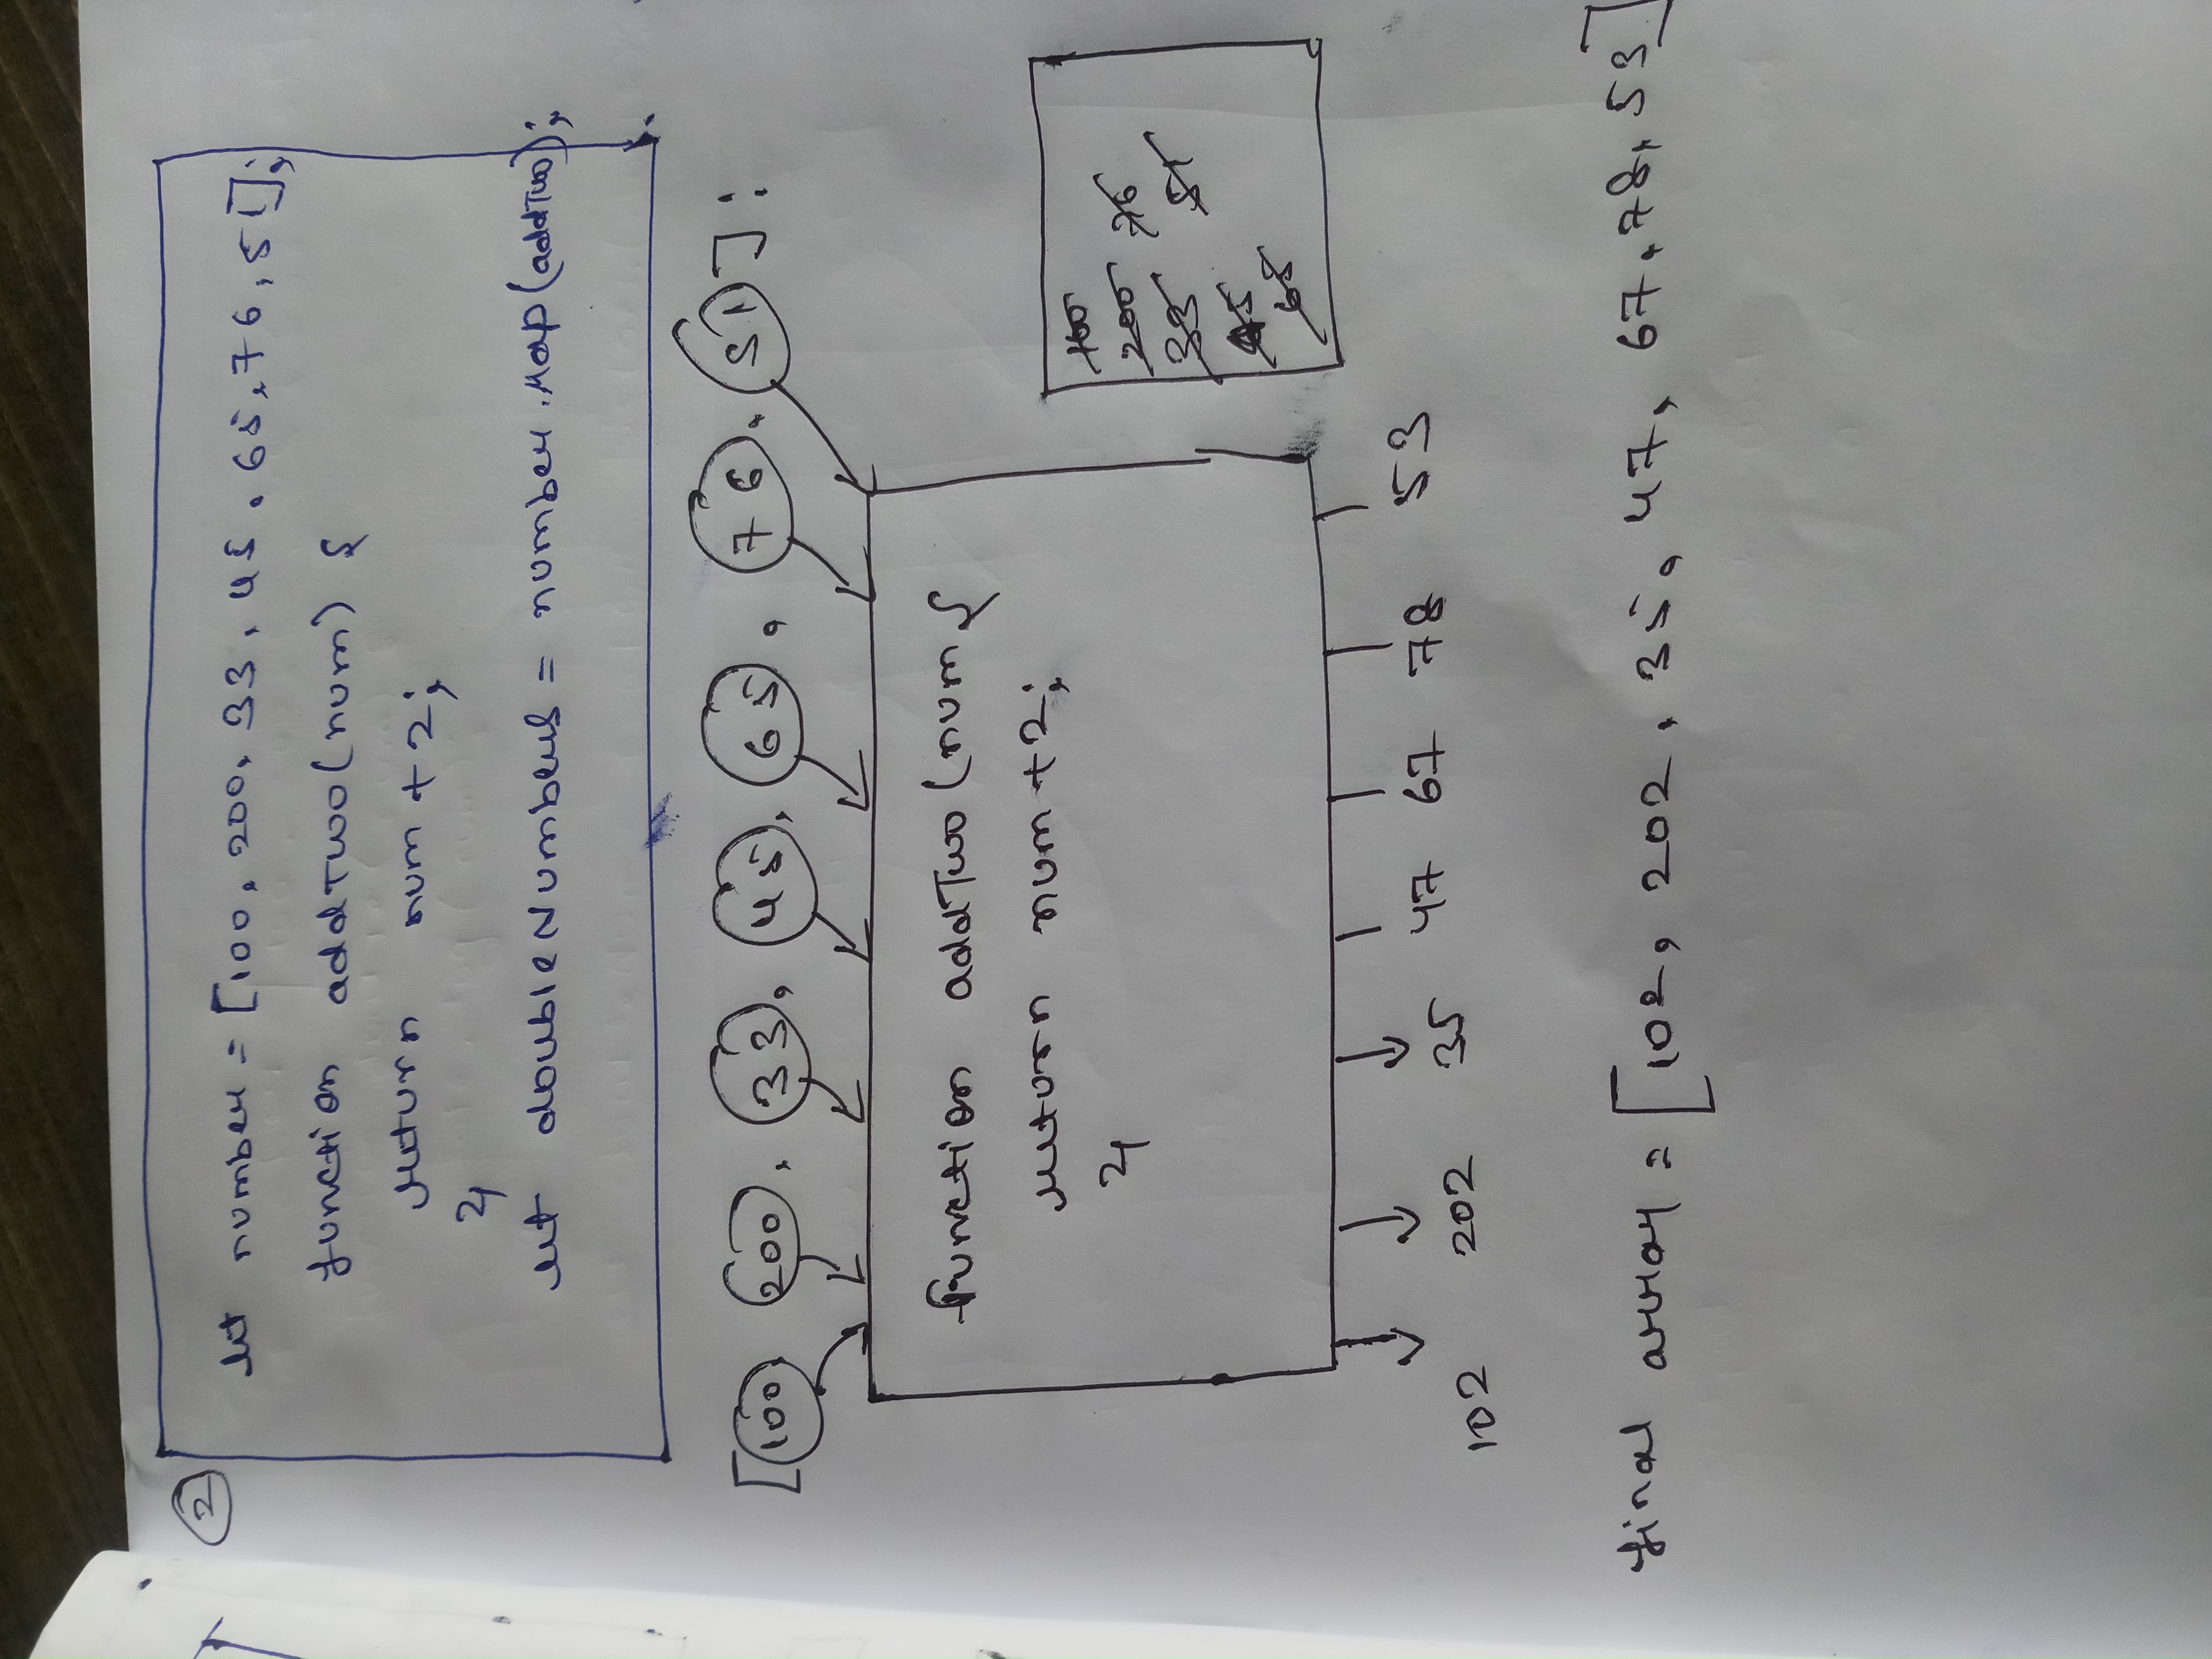 2
let number = [100, 200, 33, 45, 65, 76, 51];
function addTwo(num) {
return num + 2;
}
let doubleNumbers = number.map(addTwo);
[100 200, 33, 45, 65, 76, 51];
function addTwo(num {
return num + 2;
}
100
200 76
33 51
45
65
102 202 35 47 67 78 53
final array = [102, 202, 35, 47, 67, 78, 53]